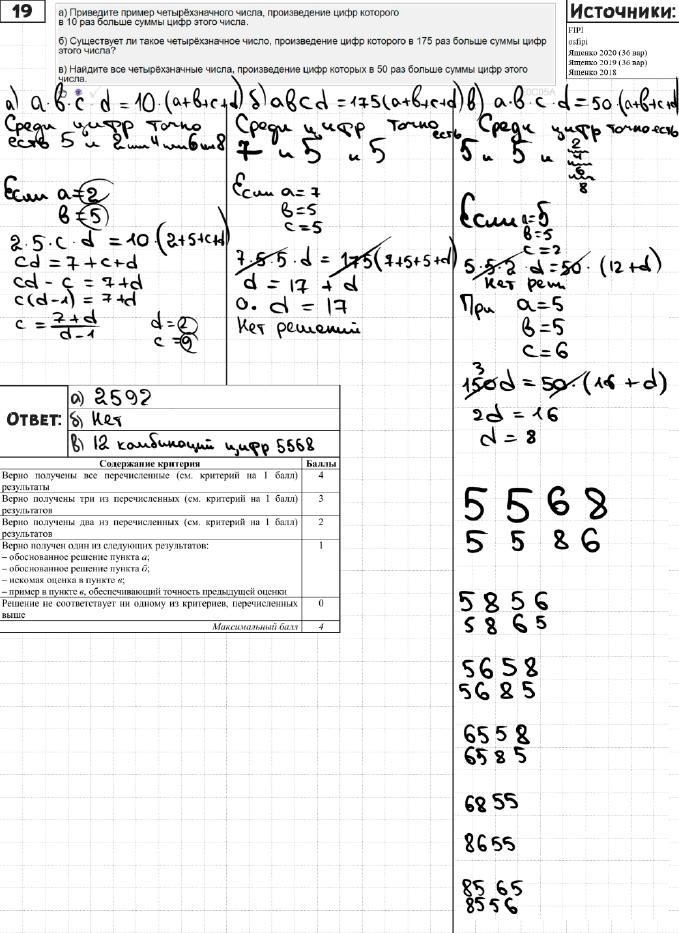 19
а) Приведите пример четырёхзначного числа, произведение цифр которого
в 10 раз больше суммы цифр этого числа.
б) Существует ли такое четырёхзначное число, произведение цифр которого в 175 раз больше суммы цифр
этого числа?
в) Найдите все четырёхзначные числа, произведение цифр которых в 50 раз больше суммы цифр этого
числа.
Источники:
FIPI
osfipi
Ященко 2020 (36 вар)
Ященко 2019 (36 вар)
Ященко 2018
а) a·b·c·d = 10·(a+b+c+d)
Среди цифр точно
есть 5 и 2 или 4 или 6 или 8
Если a=2
b=5
2·5·c·d = 10·(2+5+c+d)
cd = 7+c+d
cd - c = 7+d
c(d-1) = 7+d
c = 7+d / d-1
d=2
c=9
б) abcd = 175(a+b+c+d)
Среди цифр точно есть
7 и 5 и 5
Если a=7
b=5
c=5
7·5·5·d = 175(7+5+5+d)
d = 17 + d
0·d = 17
Нет решений
в) a·b·c·d = 50·(a+b+c+d)
Среди цифр точно есть
5 и 5 и 2 или 4 или 6 или 8
Если a=5
b=5
c=2
5·5·2·d = 50·(12+d)
Нет реш
При a=5
b=5
c=6
3
150d = 50·(16+d)
2d = 16
d = 8
5 5 6 8
5 5 8 6
5 8 5 6
5 8 6 5
5 6 5 8
5 6 8 5
6 5 5 8
6 5 8 5
6855
8655
85 65
8556
ОТВЕТ:
а) 2592
б) Нет
в) 12 комбинаций цифр 5568
Содержание критерия Баллы
Верно получены все перечисленные (см. критерий на 1 балл) 4
результаты
Верно получены три из перечисленных (см. критерий на 1 балл) 3
результатов
Верно получены два из перечисленных (см. критерий на 1 балл) 2
результатов
Верно получен один из следующих результатов: 1
– обоснованное решение пункта а;
– обоснованное решение пункта б;
– искомая оценка в пункте в;
– пример в пункте в, обеспечивающий точность предыдущей оценки
Решение не соответствует ни одному из критериев, перечисленных 0
выше
Максимальный балл 4